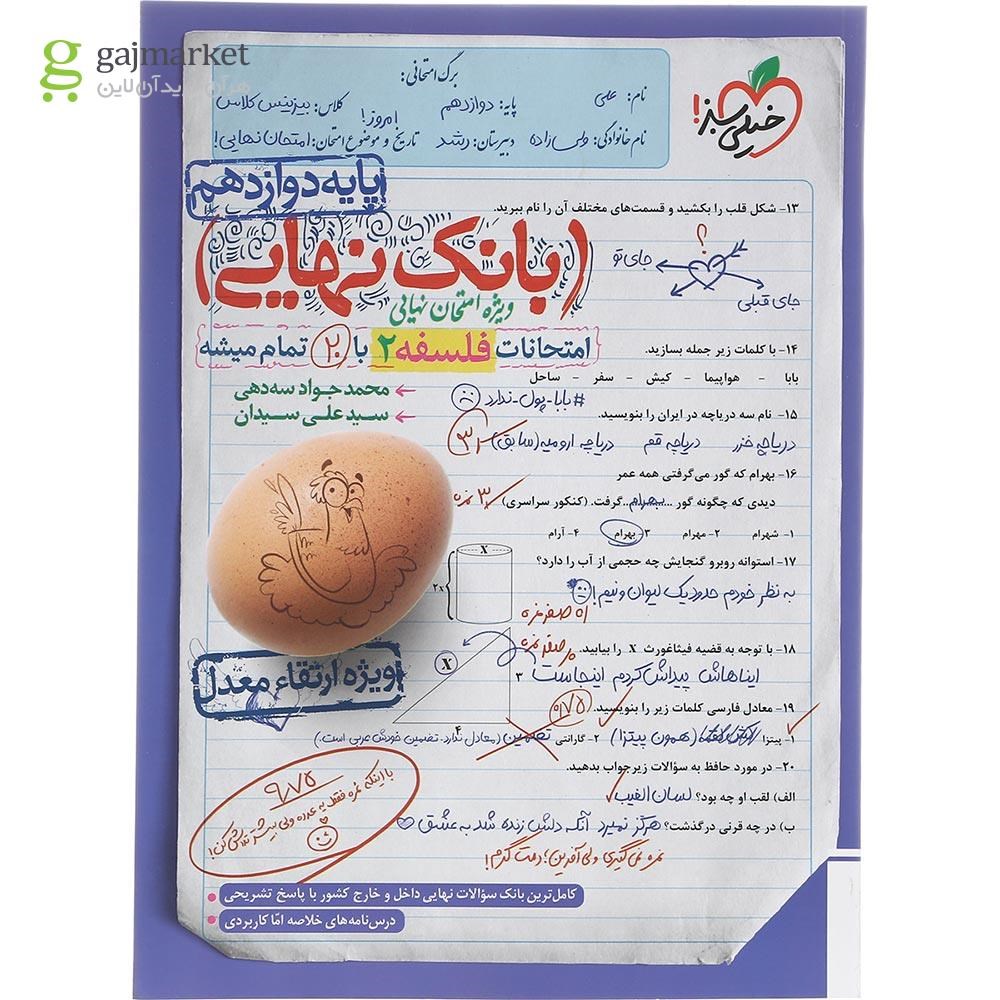 gajmarket
هر آن خرید آن لاین
خیلی سبز!
برگ امتحانی:
نام: علی
پایه: دوازدهم
کلاس: بیزینس کلاس
نام خانوادگی:
دبیرستان: رشد
تاریخ و موضوع امتحان: امروز! امتحان نهایی!
پایه دوازدهم
(بانک نهایی)
ویژه امتحان نهایی
امتحانات فلسفه ۲ با ۲۰ تمام میشه
محمدجواد سه‌دهی
سید علی سیدان
۱۳- شکل قلب را بکشید و قسمت‌های مختلف آن را نام ببرید.
؟
جای تو
جای قبلی
۱۴- با کلمات زیر جمله بسازید.
بابا - هواپیما - کیش - سفر - ساحل
#بابا-پول-ندارد
۱۵- نام سه دریاچه در ایران را بنویسید.
دریاچه خزر دریاچه قم دریاچه ارومیه (سابق)
۱۶- بهرام که گور می‌گرفتی همه عمر
دیدی که چگونه گور ...بهرام...گرفت. (کنکور سراسری) ۳ نمره
۱- شهرام ۲- مهرام ۳- بهرام ۴- آرام
۱۷- استوانه روبرو گنجایش چه حجمی از آب را دارد؟
X
۲x
به نظر خودم حدود یک لیوان و نیم!
اه صفر نمره
۱۸- با توجه به قضیه فیثاغورث X را بیابید.
صفر نمره
X
۳
۴
ایناهاش پیداش کردم اینجاست
۱۹- معادل فارسی کلمات زیر را بنویسید.
۰/۷۵
۱- پیتزا (همون پیتزا) ۲- گارانتی تضمین (معادل ندارد. تضمین خودش عربی است.)
۲۰- در مورد حافظ به سؤالات زیر جواب بدهید.
الف) لقب او چه بود؟ لسان الغیب
ب) در چه قرنی درگذشت؟ هرگز نمیرد آنکه دلش زنده شد به عشق
نمره نمی‌گیری ولی آفرین؛ دمت گرم!
ویژه ارتقاء معدل
۹/۷۵
با اینکه نمره فقط یه عدده ولی بیشتر تلاش کن!
کامل‌ترین بانک سؤالات نهایی داخل و خارج کشور با پاسخ تشریحی
درس‌نامه‌های خلاصه امّا کاربردی